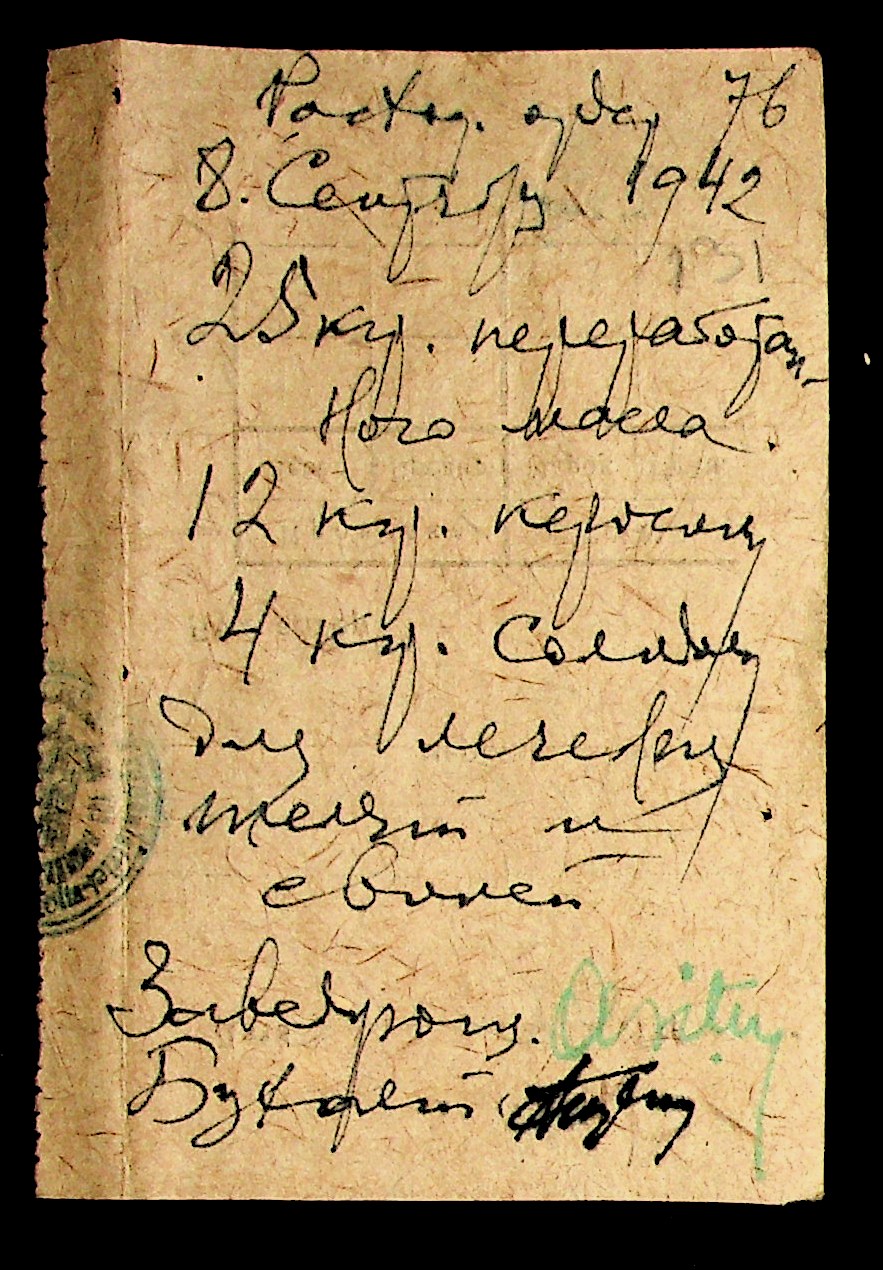 Расход. ордер 76
8. Сентября 1942
131
25 кгр. переработан-
ного масла.
12 кгр. керосину
4 кгр. солидолу
для лечебницы
телят и
свиней
Заведующ.
Бухгалт.